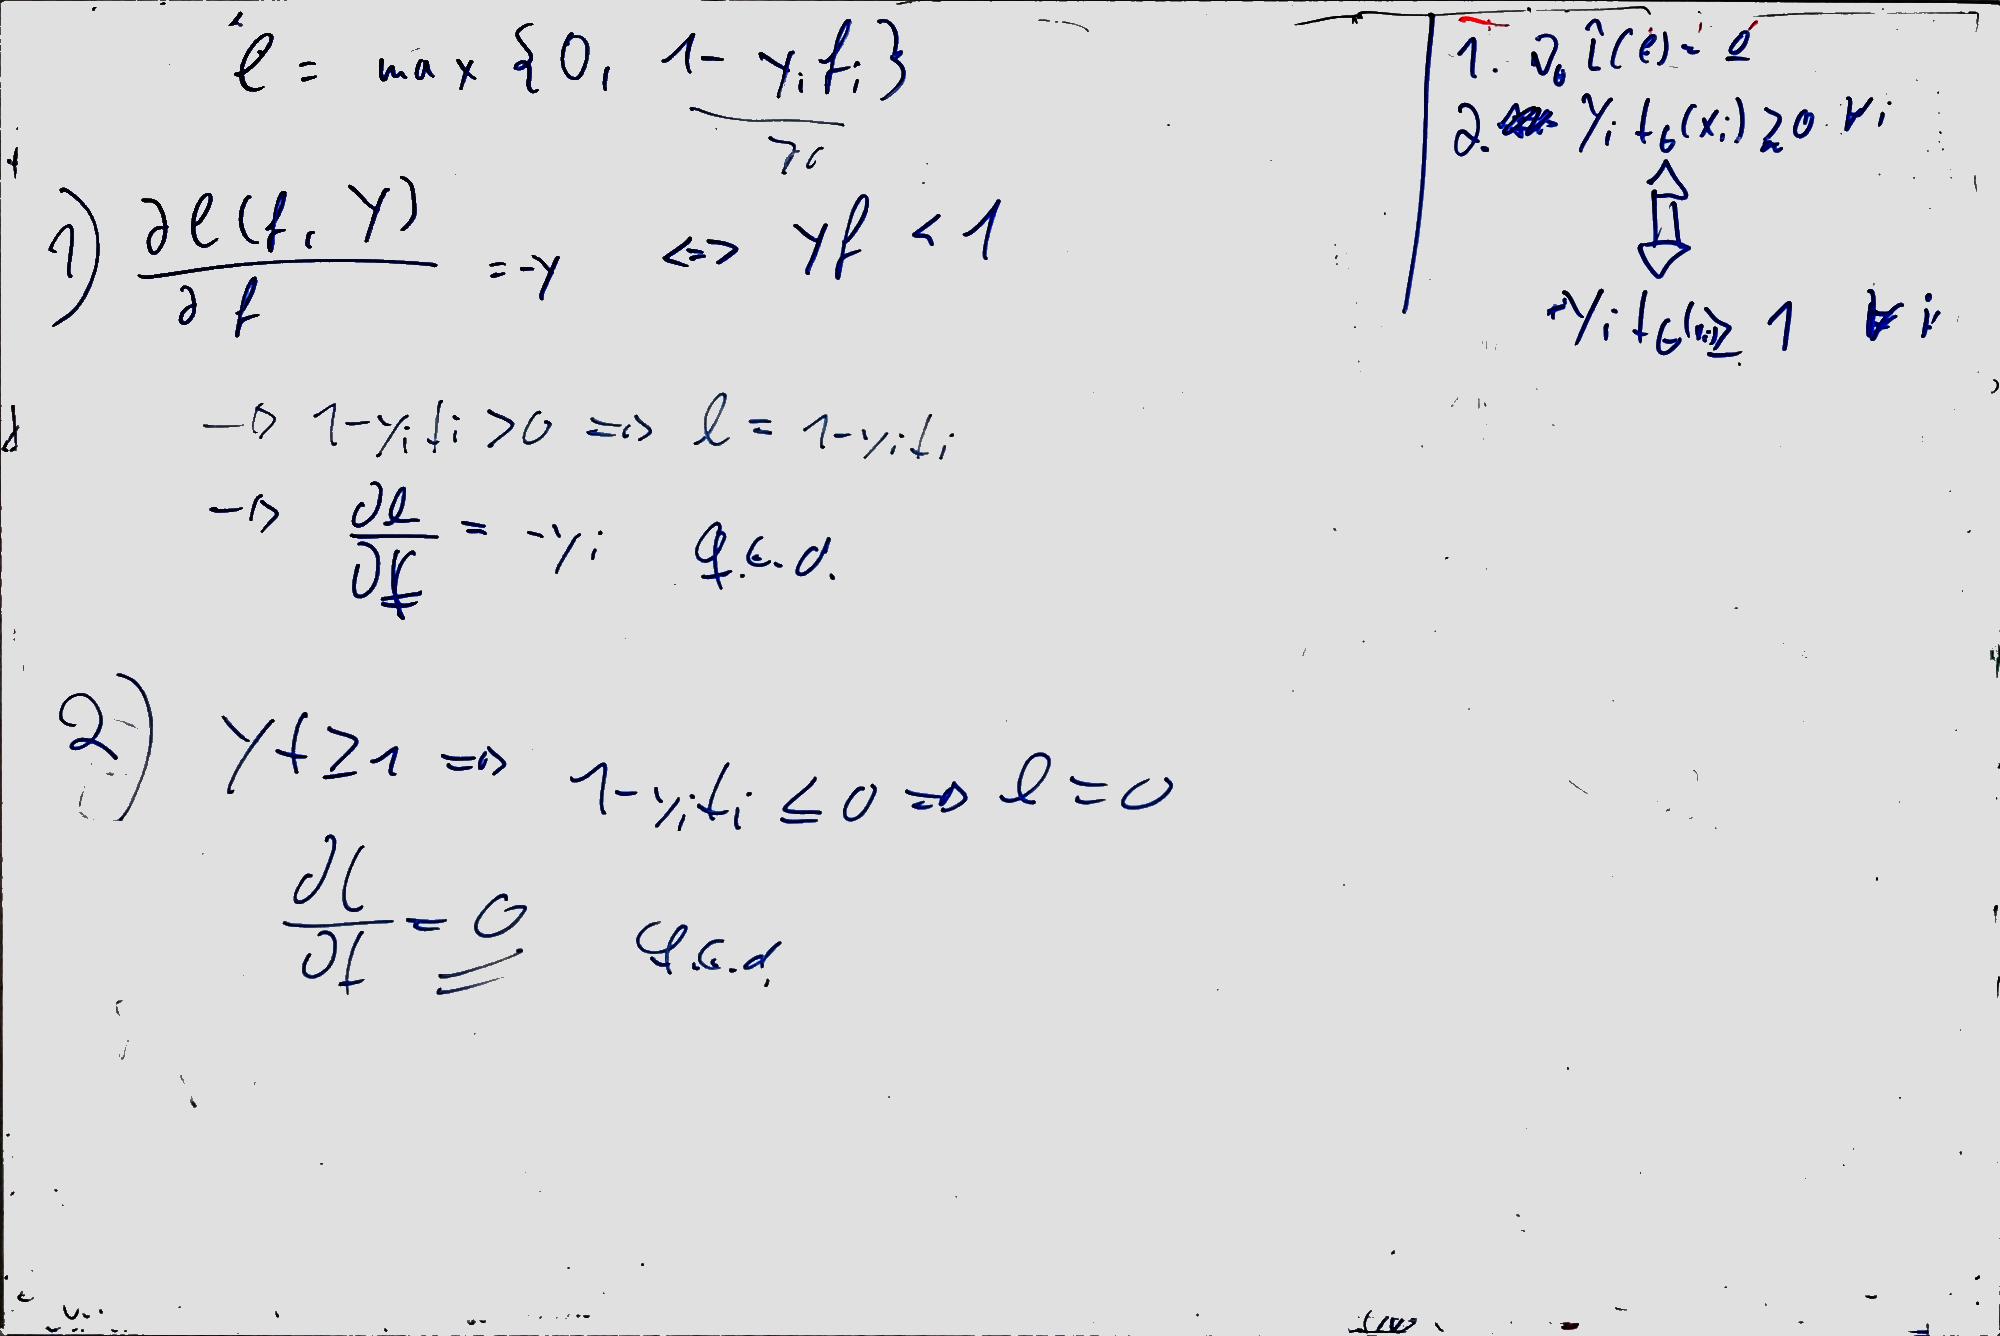 ℓ = max {0, 1 - yᵢ fᵢ}
>0
1) ∂ℓ(f, y) / ∂f = -y <=> yf < 1
→ 1 - yᵢfᵢ > 0 => ℓ = 1 - yᵢfᵢ
→ ∂ℓ / ∂f = -yᵢ q.e.d.
2) yf ≥ 1 => 1 - yᵢfᵢ ≤ 0 => ℓ = 0
∂ℓ / ∂f = 0 q.e.d.
1. ∇θ L̂(θ) = 0
2. yᵢ fθ(xᵢ) ≥ 0 ∀i
⇕
yᵢ fθ(xᵢ) ≥ 1 ∀i